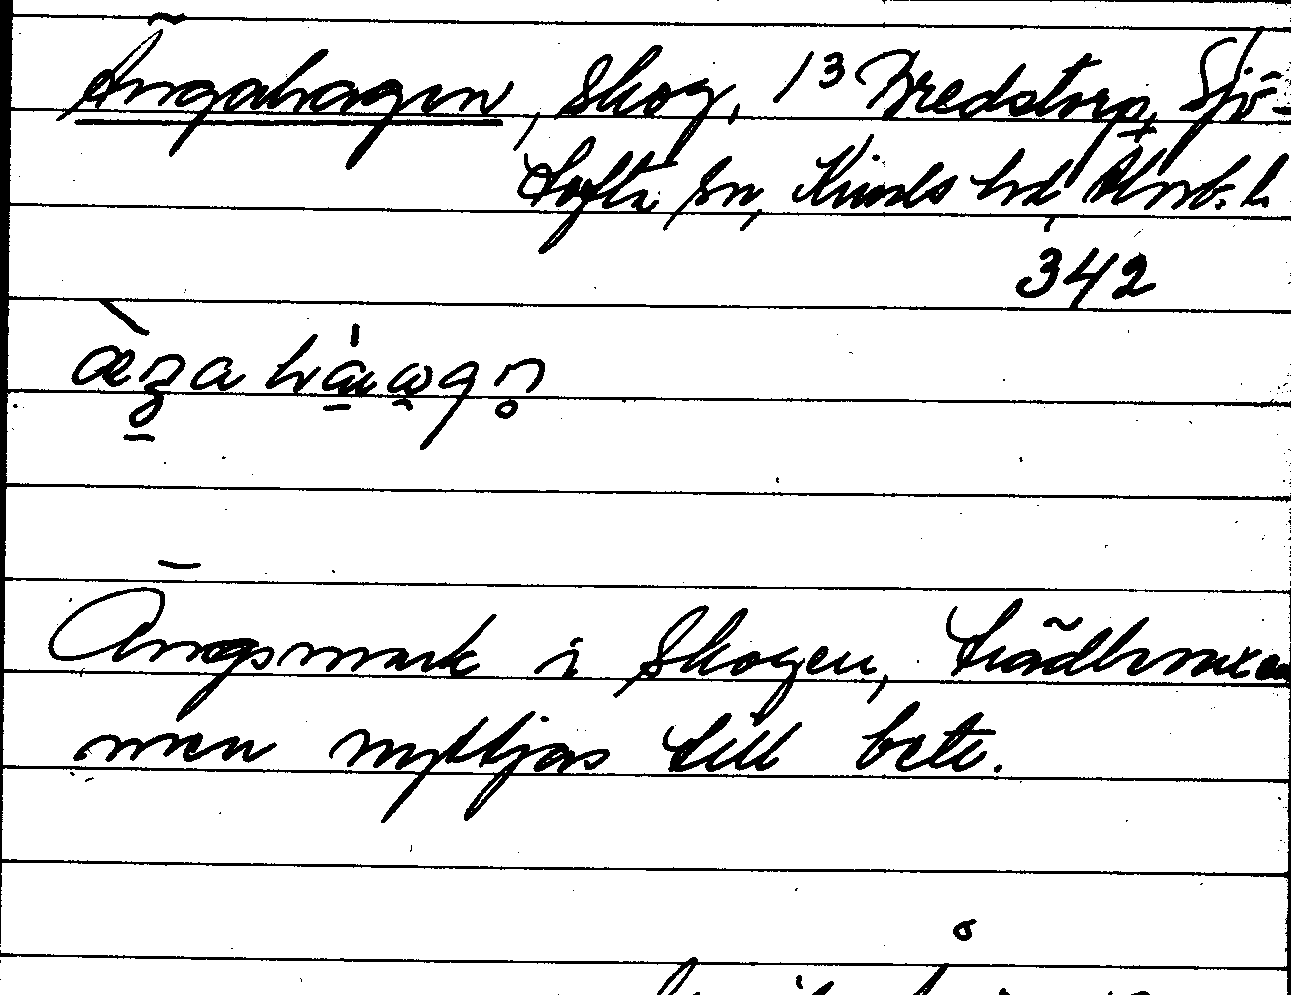 Ängahagen, Skog, 13 Bredstorp, Sjö-
tofta sn, Kinds hd Älvsb. l.
342
Ängsmark i Skogen, trädbevuxen
men nyttjas till bete.